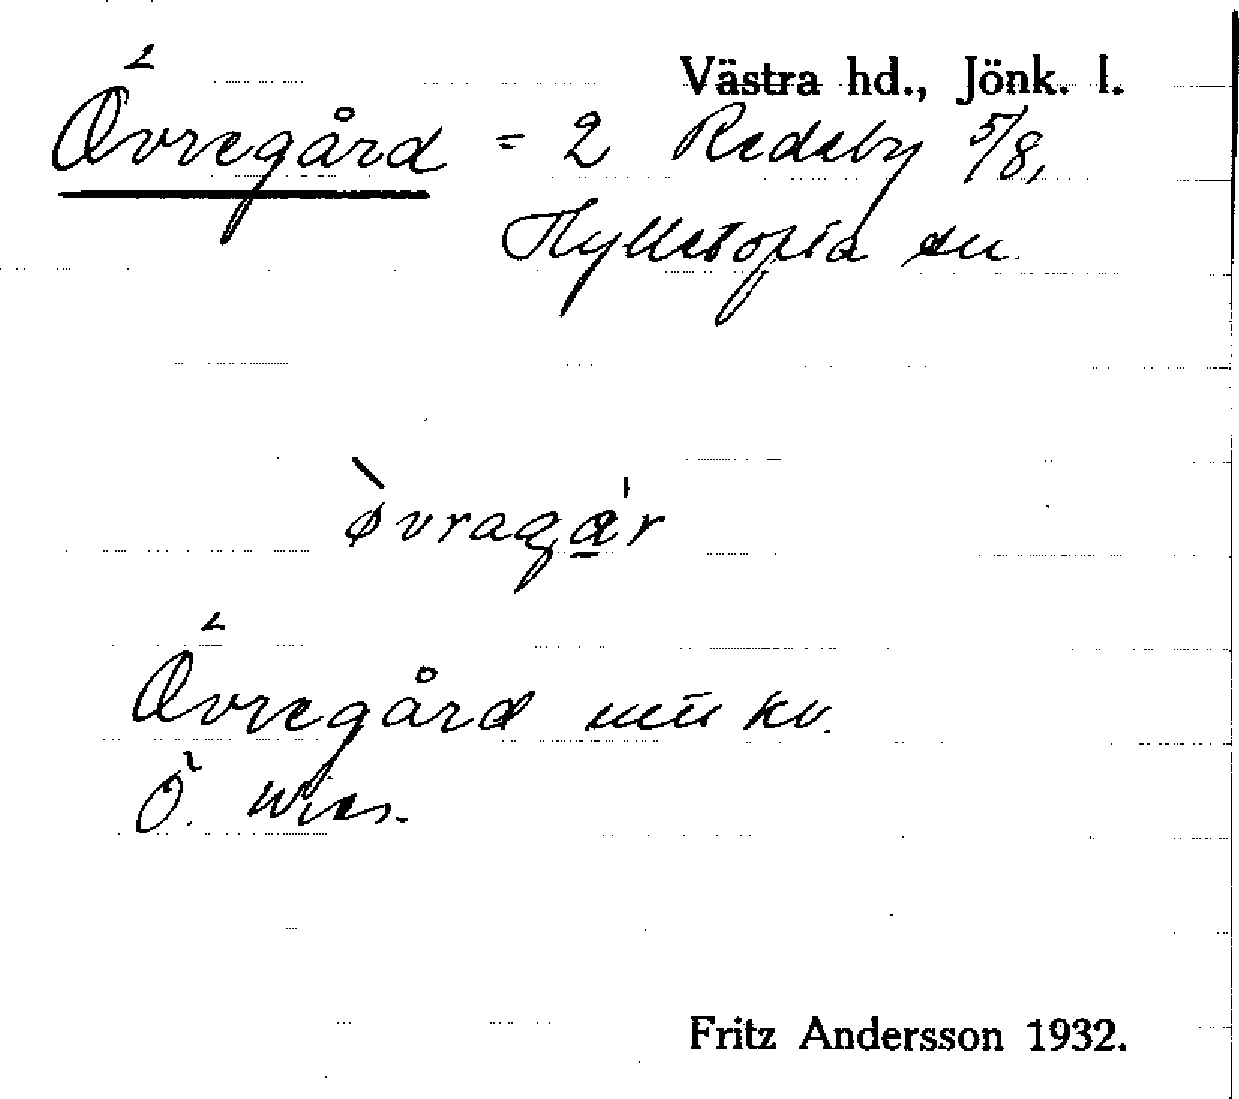 Västra hd., Jönk. l.
Övregård = 2 Redeby 5/8,
Hylletofta sn
øvragar
Övregård
Ö.
Fritz Andersson 1932.